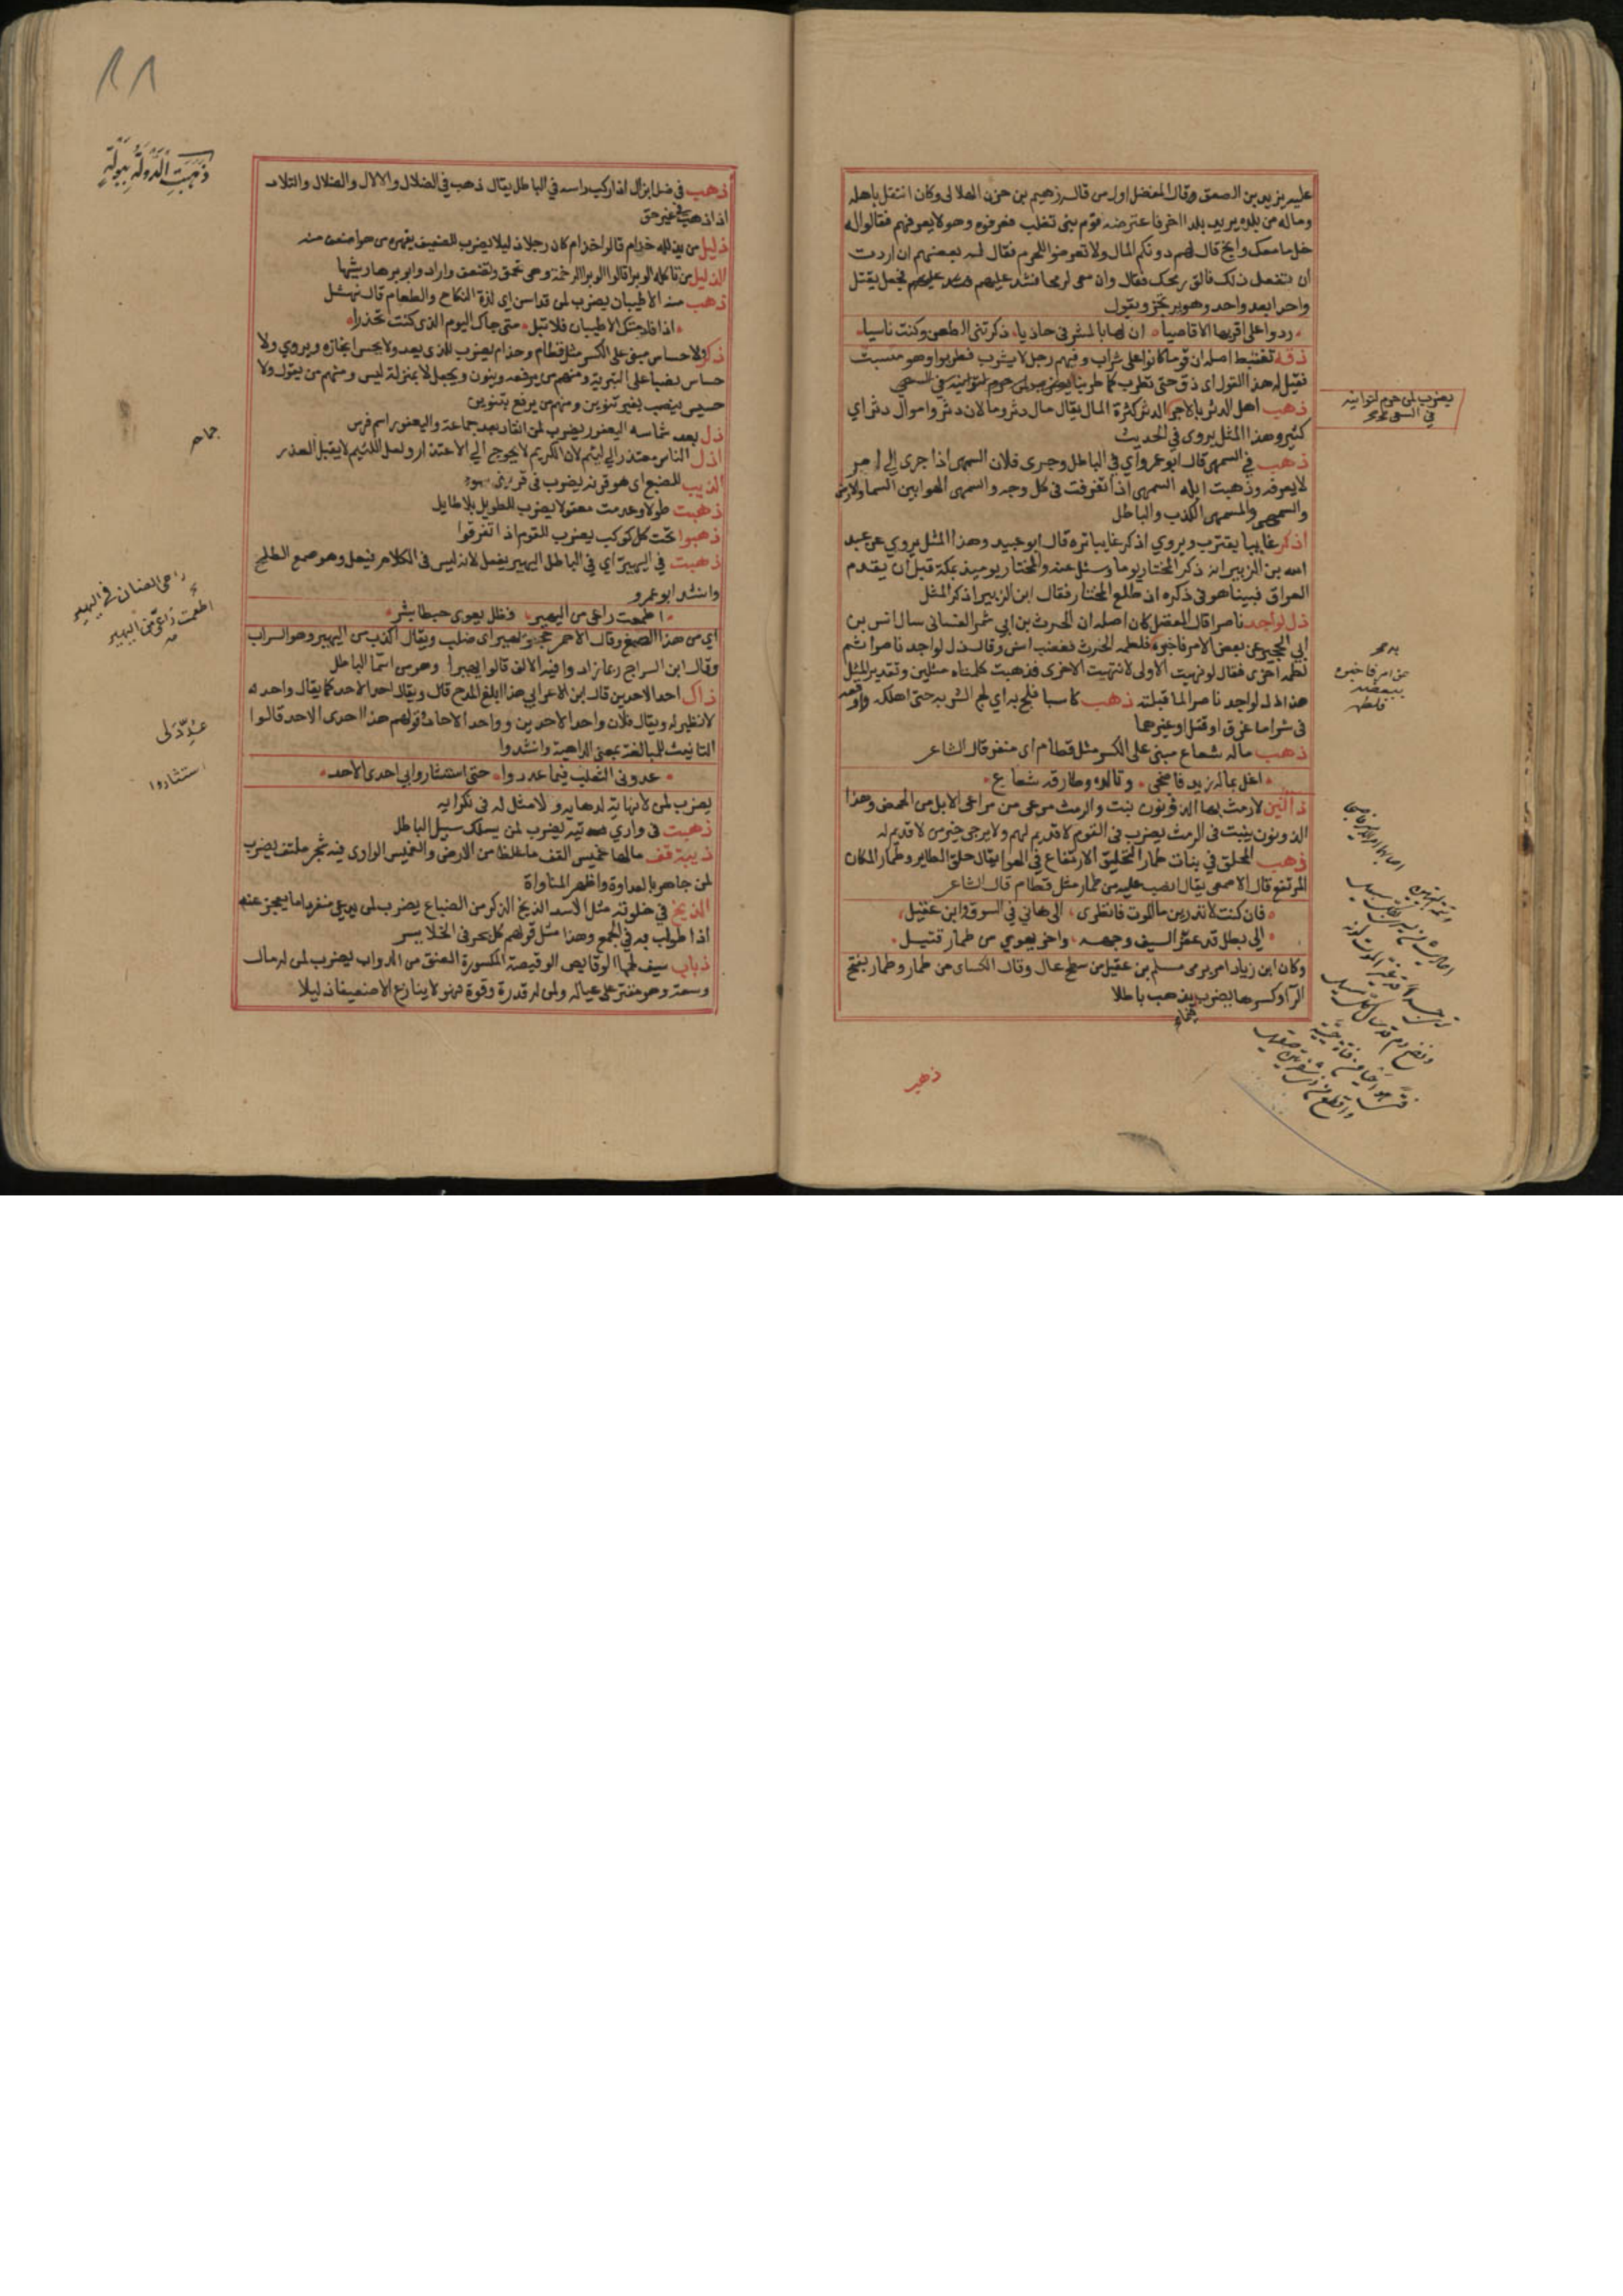 عليه يزيد بن الصعق وقال المفضل اول من قاله زهيم بن حزن الهلالى وكان انتقل باهله
وماله من بلده يريد بلدا اخر فاعترضه قوم بنى تغلب فعرفوه وهو لا يعرفهم فقالوا له
خل ما معك وانج قال لهم دونكم المال ولا تعرضوا للحرم فقال له بعضهم ان اردت
ان تفعل ذلك فالق رمحك فقال وان معى لرمحا فشد عليهم فجعل يقتل
واحدا بعد واحد وهو يرتجز ويقول
ردوا على اقربها الاقاصيا ان لها بالمشرفى حاديا ذكرتنى الطعن وكنت ناسيا
ذقه تغتبط اصله ان قوما كانوا على شراب وفيهم رجل لا يشرب فطربوا وهو مسبت
فقيل له هذا القول اى ذق حتى تطرب كما طربنا يضرب لمن حرم لتوانيه فى السعى
ذهب اهل الدثر بالاجر الدثر كثرة المال يقال مال دثر ومالان دثر واموال دثر اي
كثير وهذا المثل يروى في الحديث
ذهب في السمهى قال ابو عمرو اي في الباطل وجرى فلان السمهى اذا جرى الى امر
لا يعرفه وذهبت ابله السمهى اذا تفرقت فى كل وجه والسمهى الهوا بين السما والارض
والسمهى والسمهى الكذب والباطل
اذكر غايبا يقترب ويروي اذكر غايبا تره قال ابو عبيد وهذا المثل يروي عن عبد
الله بن الزبير انه ذكر المختار يوما وسئل عنه والمختار يوميذ بمكة قبل ان يقدم
العراق فبينا هو فى ذكره اذ طلع المختار فقال ابن الزبير اذكر المثل
ذل لو اجد ناصرا قال المفضل كان اصله ان الحرث بن ابي شمر الغسانى سال انس بن
ابي الحجير عن بعض الامر فاخبره فلطمه الحرث فغضب انس وقال ذل لو اجد ناصرا ثم
لطمه اخرى فقال لو نهيت الاولى لانتهيت الاخرى فذهبت كلمتاه مثلين وتقدير المثل
هذا ذل لو اجد ناصرا لما قبلته ذهب كاسبا فلج به اي لج الشر به حتى اهلكه واوقعه
فى شر اما غرق او قتل او غيرهما
ذهب ماله شعاع مبنى على الكسر مثل قطام اى متفرقا قال الشاعر
اغل بماله زيد فاضحى وتالده وطارفه شعاع
ذآنين لا رمث لها الذونون نبت والرمث مرعى من مراعى الابل من الحمض وهذا
الذونون ينبت فى الرمث يضرب فى القوم لا قديم لهم ولا يرجى خير من لا قديم له
ذهب المحلق في بنات طمار التحليق الارتفاع في الهوا يقال حلق الطاير وطمار المكان
المرتفع قال الاصمعى يقال انصب عليه من طمار مثل قطام قال الشاعر
فان كنت لا تدرين ما الموت فانظرى الى هاني في السوق وابن عقيل
الى بطل قد عفر السيف وجهه واخر يهوي من طمار قتيل
وكان ابن زياد امر برمى مسلم بن عقيل من سطح عال وقال الكساى من طمار وطمار بفتح
الرآ وكسرها يضرب فيما يذهب باطلا
يضرب لمن حرم لتوانيه
في السعى
ذهب
ذهب فى ضل ابن ال اذا ركب راسه في الباطل يقال ذهب فى الضلال والالال والضلال والتلاد
اذا ذهب في غير حق
ذليل من يذلله خذام قالوا خذام كان رجلا ذليلا يضرب للضعيف يقهره من هو اضعف منه
الذليل من تاكله الوبرا قالوا الوبرا الرخمة وهى تحمق وتضعف واراد بوبرها ريشها
ذهب منه الاطيبان يضرب لمن قد اسن اي لذة النكاح والطعام قال نهشل
اذا فات منك الاطيبان فلا تبل متى جاك اليوم الذى كنت تحذرا
ذكر ولا حساس مبنى على الكسر مثل قطام وحذام يضرب للذى يعد ولا يحس انجازه ويروي ولا
حساس نصبا على التبرية ومنهم من يرفعه وينون ويجعل لا بمنزلة ليس ومنهم من يقول ولا
حسيس بنصب بغير تنوين ومنهم من يرفع بتنوين
ذل بعد شماسه اليعفور يضرب لمن انقاد بعد جماعة واليعفور اسم فرس
اذل الناس معتذر الى لئيم لان الكريم لا يحوج الى الاعتذار ولعل اللئيم لا يقبل العذر
الذيب للضبع اى هو قرنه يضرب فى قرينى سوء
ذهبت طولا وعدمت معقولا يضرب للطويل بلا طايل
ذهبوا تحت كل كوكب يضرب للقوم اذا تفرقوا
ذهبت في اليهير اي في الباطل اليهير يفعل لانه ليس فى الكلام فيعل وهو صمغ الطلح
وانشد ابو عمرو
اطعمت راعى من اليهير فظل يعوى حبطا بشر
اي من هذا الصمغ وقال الاحمر حجر يهير اى صلب ويقال اكذب من اليهير وهو السراب
وقال ابن السراج ربما زاد وا فيه الالف قالوا يهيرا وهو من اسما الباطل
ذاك احد الاحدين قال ابن الاعرابي هذا ابلغ المدح قال ويقال احد الاحد كما يقال واحد له
لا نظير له ويقال فلان واحد الاحدين وواحد الاحاد وقولهم هذا احدى الاحد قالوا
التانيث للمبالغة بمعنى الداهية وانشدوا
عدونى الثعلب فيما عددوا حتى استثاروا بي احدى الاحد
يضرب لمن لا نهاية لدهايه ولا مثل له فى نكرايه
ذهبت فى وادي تيه يضرب لمن يسلك سبيل الباطل
ذيبة قف مالها خميس القف ما غلظ من الارض والغميس الوادى فيه شجر ملتف يضرب
لمن جاهر بالعداوة واظهر المناواة
الذيخ في خلوته مثل الاسد الذيخ الذكر من الضباع يضرب لمن يدعى منفردا ما يعجز عنه
اذا طولب به في الجمع وهذا مثل قولهم كل مجر فى الخلا يسر
ذباب سيف لحمه الوقايص الوقيصة المكسورة العنق من الدواب يضرب لمن له مال
وسعة وهو مقتر على عياله ولمن له قدرة وقوة فهو لا ينازع الا ضعيفا ذليلا
ذَهَبَتِ الدَّوْلَةُ بِبَوْلَةٍ
جماحه
راعى الضان في اليهير
اطعمت راعى من اليهير
استثاروا